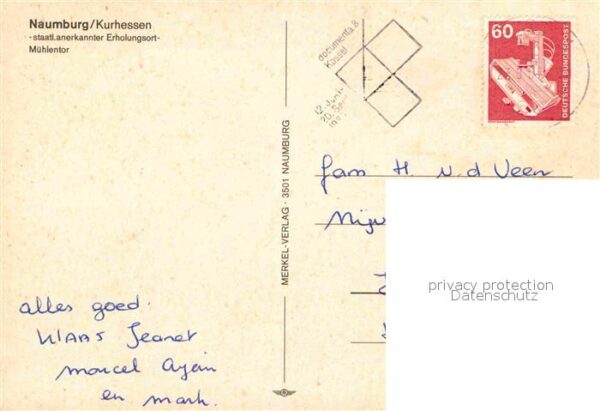 Naumburg/Kurhessen
-staatl.anerkannter Erholungsort-
Mühlentor
alles goed.
Klaas Jeanet
marcel
en mark.
MERKEL-VERLAG · 3501 NAUMBURG
documenta 8
Kassel
12. Juni-
20. Sep
60
DEUTSCHE BUNDESPOST
Fam H. v. d Veen
privacy protection
Datenschutz